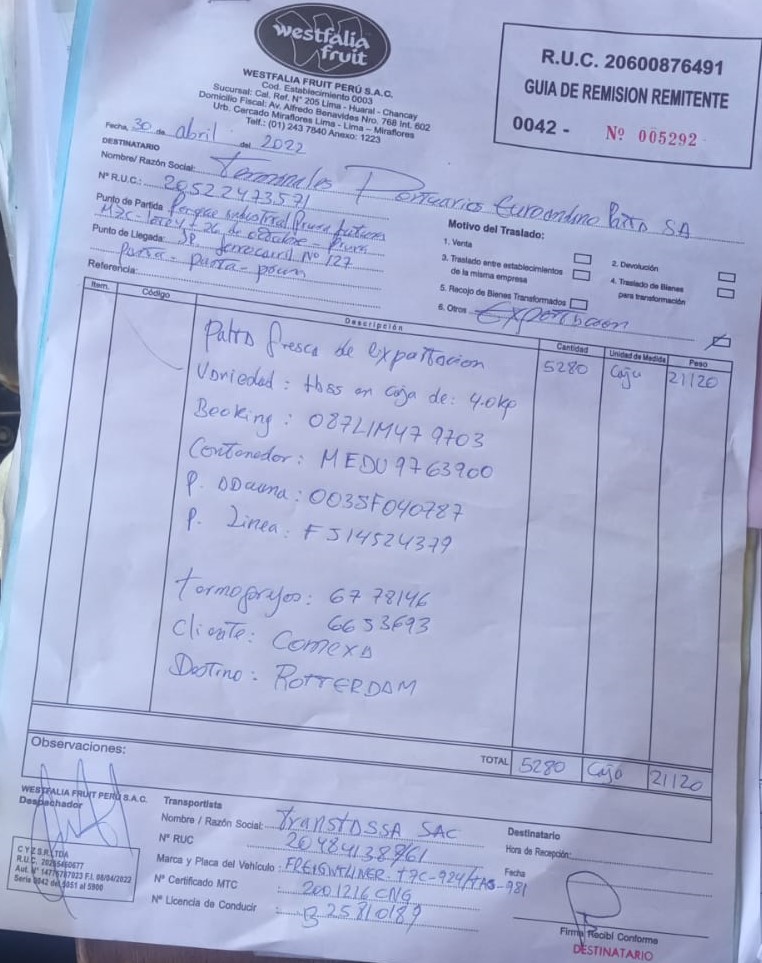 westfalia
fruit
WESTFALIA FRUIT PERÚ S.A.C.
Cod. Establecimiento 0003
Sucursal: Cal. Ref. N° 205 Lima - Huaral - Chancay
Domicilio Fiscal: Av. Alfredo Benavides Nro. 768 Int. 602
Urb. Cercado Miraflores Lima - Lima – Miraflores
Telf.: (01) 243 7840 Anexo: 1223
R.U.C. 20600876491
GUIA DE REMISION REMITENTE
0042 - Nº 005292
Fecha, 30 de abril del 2022
DESTINATARIO
Nombre/ Razón Social: Terminales Portuarios Euroandino Paita SA
N° R.U.C.: 20522473571
Punto de Partida Parque industrial Piura futura
MZC-lote 4-26 de octubre - Piura
Punto de Llegada: ferrocarril N° 127
Paita - paita - piura
Referencia:
Motivo del Traslado:
1. Venta
2. Devolución
3. Traslado entre establecimientos
de la misma empresa
4. Traslado de Bienes
para transformación
5. Recojo de Bienes Transformados
6. Otros Exportacion
Item. Código Descripción Cantidad Unidad de Medida Peso
Palta fresca de exportacion 5280 Caja 21120
Variedad : Hass en caja de: 4.0kg
Booking : 087LIM479703
Contenedor : MEDU9763900
P. Aduana : 003SF040787
P. Linea : FJ14524379
Termografos: 6778146
6653693
Cliente: Comexa
Destino : ROTTERDAM
TOTAL 5280 Caja 21120
Observaciones:
WESTFALIA FRUIT PERÚ S.A.C.
Despachador
C Y Z S.R.LTDA
Serie 0042 del 5051 al 5900
Transportista
Nombre / Razón Social: TransTOSSA SAC
N° RUC 20484138961
Marca y Placa del Vehículo : FREIGHTLINER - T7C-924/TAS-981
N° Certificado MTC : 2001216 CNG
N° Licencia de Conducir : B 25810189
Destinatario
Hora de Recepción:
Fecha
Firma Recibí Conforme
DESTINATARIO